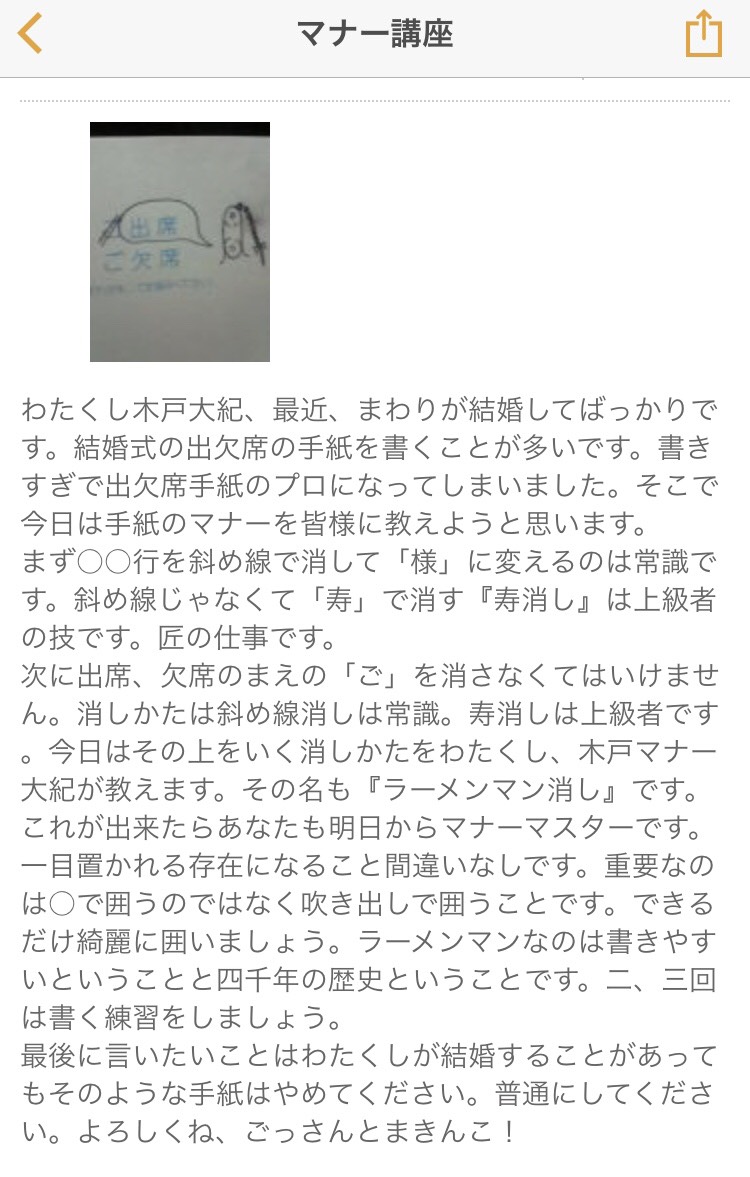 マナー講座
出席
ご欠席
わたくし木戸大紀、最近、まわりが結婚してばっかりで
す。結婚式の出欠席の手紙を書くことが多いです。書き
すぎで出欠席手紙のプロになってしまいました。そこで
今日は手紙のマナーを皆様に教えようと思います。
まず〇〇行を斜め線で消して「様」に変えるのは常識で
す。斜め線じゃなくて「寿」で消す『寿消し』は上級者
の技です。匠の仕事です。
次に出席、欠席のまえの「ご」を消さなくてはいけませ
ん。消しかたは斜め線消しは常識。寿消しは上級者です
。今日はその上をいく消しかたをわたくし、木戸マナー
大紀が教えます。その名も『ラーメンマン消し』です。
これが出来たらあなたも明日からマナーマスターです。
一目置かれる存在になること間違いなしです。重要なの
は〇で囲うのではなく吹き出しで囲うことです。できる
だけ綺麗に囲いましょう。ラーメンマンなのは書きやす
いということと四千年の歴史ということです。二、三回
は書く練習をしましょう。
最後に言いたいことはわたくしが結婚することがあって
もそのような手紙はやめてください。普通にしてくださ
い。よろしくね、ごっさんとまきんこ！